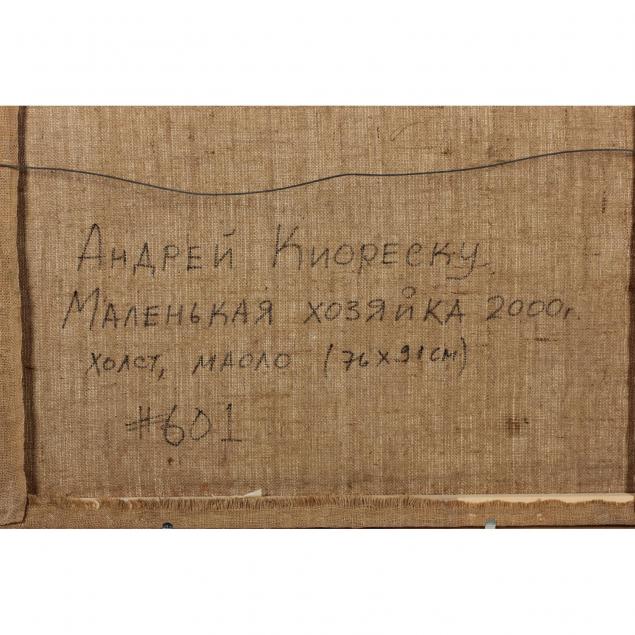 Андрей Киореску
Маленькая хозяйка 2000г.
холст, масло (76x91см)
#601